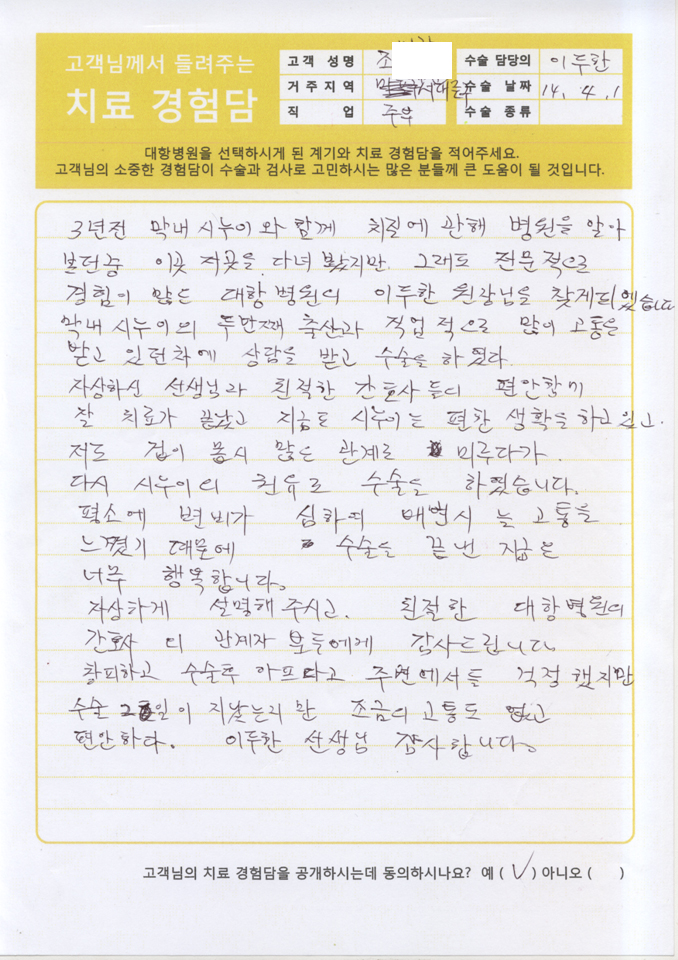 고객님께서 들려주는
치료 경험담
고객 성명 조 수술 담당의 이두한
거주지역 수술 날짜 14. 4. 1
직 업 주부 수술 종류
대항병원을 선택하시게 된 계기와 치료 경험담을 적어주세요.
고객님의 소중한 경험담이 수술과 검사로 고민하시는 많은 분들께 큰 도움이 될 것입니다.
3년전 막내 시누이와 함께 치질에 관해 병원을 알아
보던중 이곳 저곳을 다녀 봤지만. 그래도 전문적으로
경험이 많은 대항병원의 이두한 원장님을 찾게되었습니다
막내 시누이의 두번째 출산과 직업적으로 많이 고통을
받고 있던차에 상담을 받고 수술을 하였다.
자상하신 선생님과 친절한 간호사들의 편안함에
잘 치료가 끝났고 지금도 시누이는 편한 생활을 하고있고.
저도 겁이 몹시 많은 관계로 미루다가.
다시 시누이의 권유로 수술을 하였습니다.
평소에 변비가 심하여 배변시 늘 고통을
느꼈기 때문에 수술을 끝낸 지금은
너무 행복합니다.
자상하게 설명해주시고. 친절한 대항병원의
간호사 외 관계자 모두에게 감사드립니다
창피하고 수술후 아프다고 주변에서들 걱정했지만
수술 2일이 지났는데 조금의 고통도 없고
편안하다. 이두한 선생님 감사합니다.
고객님의 치료 경험담을 공개하시는데 동의하시나요? 예 (✓) 아니오 ( )